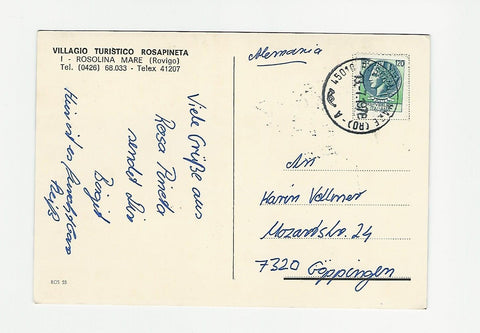 VILLAGIO TURISTICO ROSAPINETA
I - ROSOLINA MARE (Rovigo)
Tel. (0426) 68.033 - Telex 41207
Viele Grüße aus
Rosa Pineta
sendet Dir
Birgit
Hier ist es furchtbar
heiß
BDS 55
Alemania
120
45010
MARE (RO) - A
An
Karin Vollmer
Mozartstr. 24
7320 Göppingen